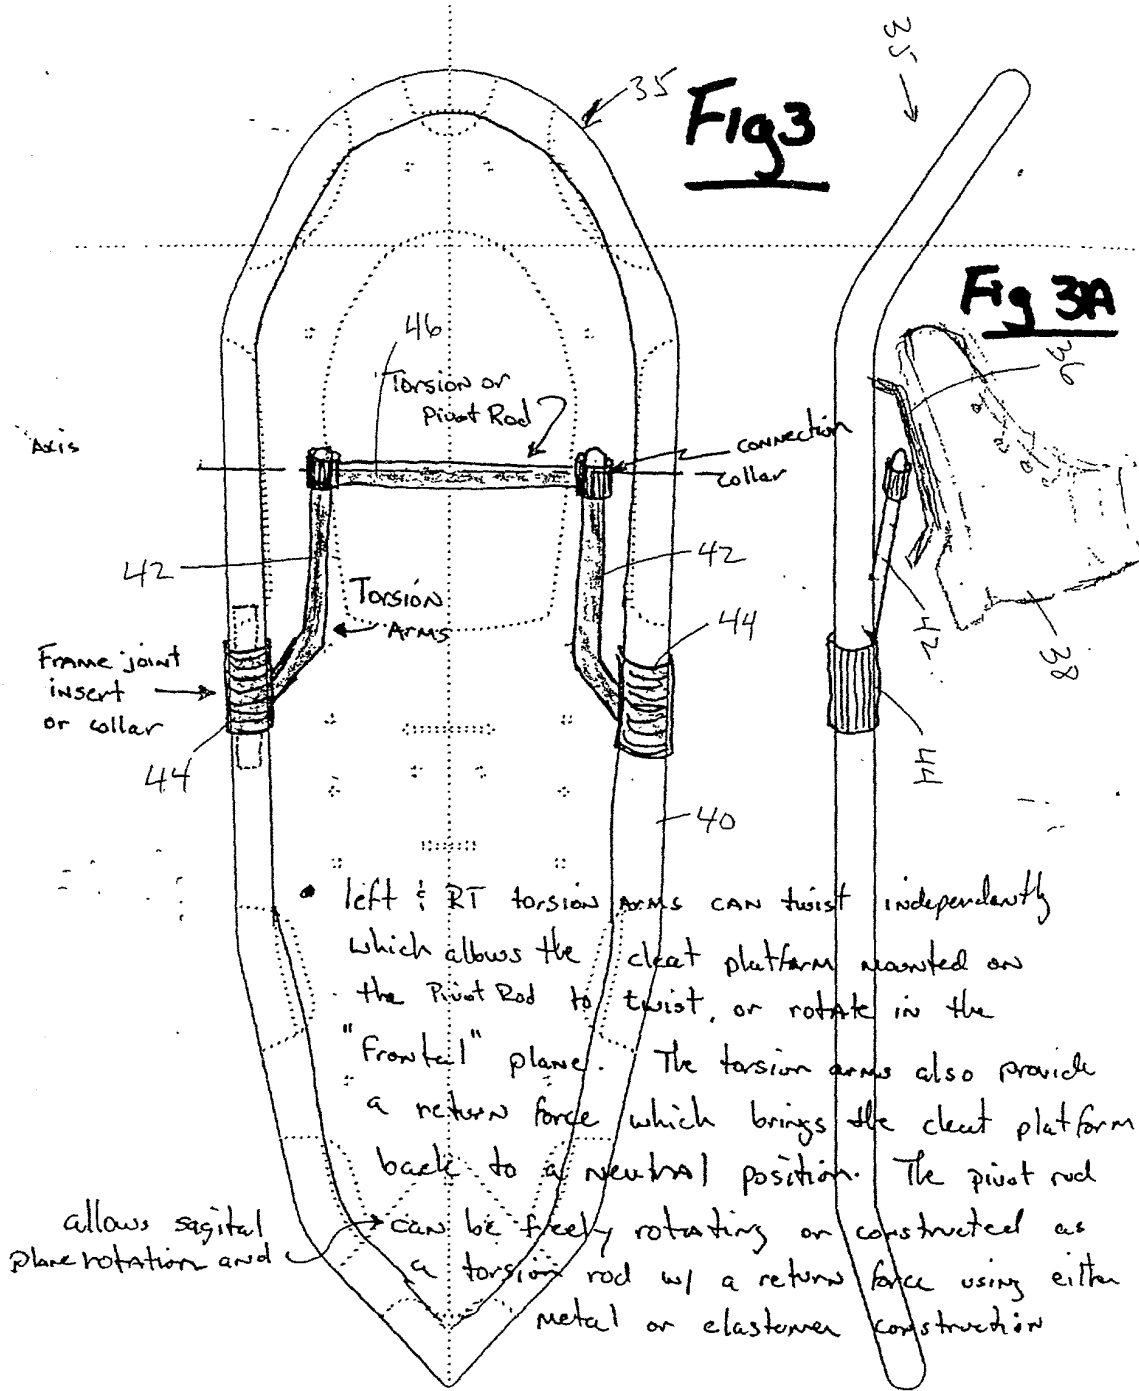 35
Fig3
35
Fig 3A
36
46
Torsion or
Pivot Rod
Axis
connection
collar
42
42
Torsion
Arms
44
42
38
Frame joint
insert
or collar
44
44
40
• left & RT torsion Arms CAN twist independently
which allows the cleat platform mounted on
the Pivot Rod to twist, or rotate in the
"Frontal" plane. The torsion arms also provide
a return force which brings the cleat platform
back to a neutral position. The pivot rod
allows sagital
plane rotation and
can be freely rotating or constructed as
a torsion rod w/ a return force using either
metal or elastomer construction